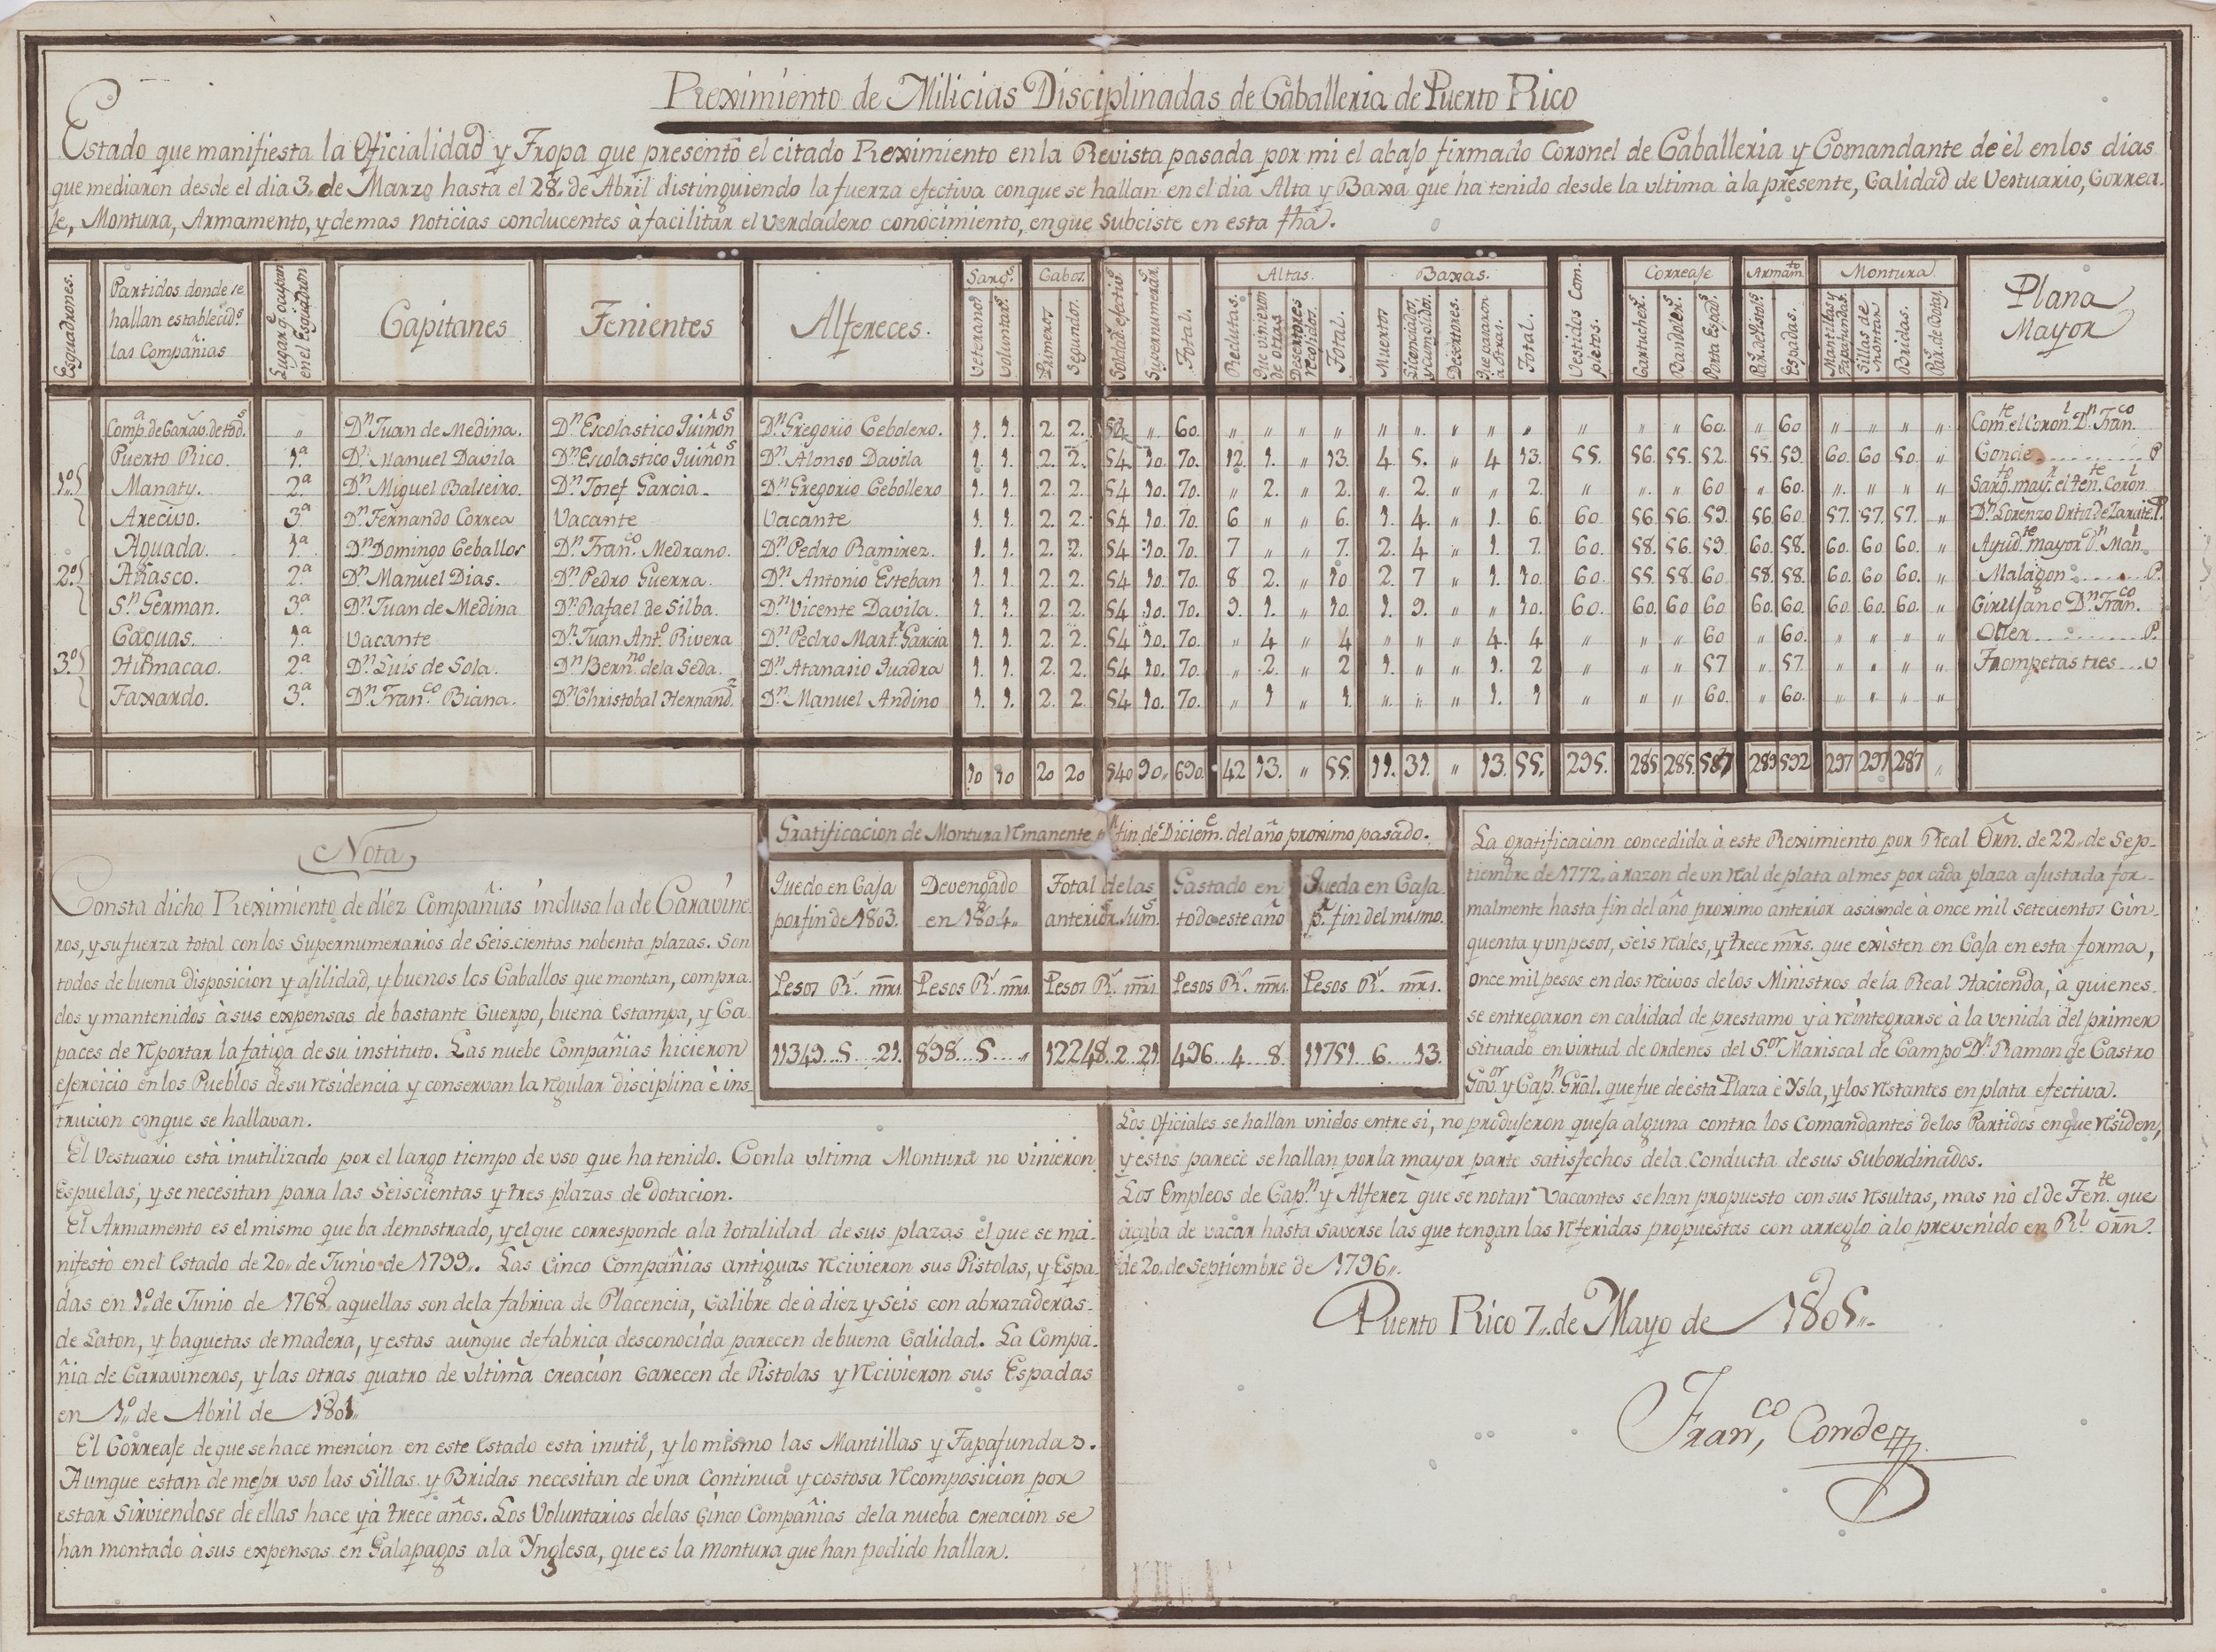 Reximiento de Milicias Disciplinadas de Caballeria de Puerto Rico
Estado que manifiesta la Oficialidad y Tropa que presentò el citado Reximiento en la Revista pasada por mi el abajo firmado Coronel de Caballeria y Comandante de èl en los dias
que mediaron desde el dia 3,, de Marzo hasta el 28,, de Abril distinguiendo la fuerza efectiva con que se hallan en el dia Alta y Baxa que ha tenido desde la ultima à la presente, Calidad de Vestuario, Correa-
je, Montura, Armamento, y demas noticias conducentes à facilitar el verdadero conocimiento, en que subciste en esta fha.
Esquadrones. Partidos donde se hallan establecid.s las Compañias Lugar q.e ocupan en el Esquadron Capitanes Tenientes Alfereces. Sarg.s Veteranos Voluntar.s Cabos. Primeros Segundos. Soldad.s efectiv.s Supernumerar.s Total. Altas. Reclutas. Que vinieron de otras Desertores recojidos. Total. Baxas. Muertos Licenciados y cumplidos. Desertores. Que pasaron a otras. Total. Vestidos Completos. Correaje Cartucher.s Bandoler.s Porta Espad.s Armam.to Par.s de Pistol.s Espadas. Montura Mantillas y Tapafundas. Sillas de montar Bridas. Par.s de Botas. Plana Mayor
Comp.a de Carav.s de tod.s ,, D.n Juan de Medina. D.n Escolastico Quiñon.s D.n Gregorio Cebolero. 1. 1. 2. 2. 52. ,, 60. ,, ,, ,, ,, ,, ,, ,, ,, ,, ,, ,, ,, 60. ,, 60 ,, ,, ,, ,, Com.te el Coron.l D.n Fran.co
1.º Puerto Rico. 1.a D.n Manuel Davila D.n Escolastico Quiñon.s D.n Alonso Davila 1. 1. 2. 2. 54. 10. 70. 12. 1. ,, 13. 4 5. ,, 4 13. 55. 56. 55. 52. 55. 59. 60. 60 50. ,, Conde P.
Manaty. 2.a D.n Miguel Balseiro. D.n Josef Garcia. D.n Gregorio Cebollero 1. 1. 2. 2. 54 10. 70. ,, 2. ,, 2. ,, 2. ,, ,, 2. ,, ,, ,, 60 ,, 60. ,, ,, ,, ,, Sarg.to may.r el Ten.te Coron.l
Arecivo. 3.a D.n Fernando Correa Vacante Vacante 1. 1. 2. 2. 54 10. 70. 6 ,, ,, 6. 1. 4. ,, 1. 6. 60 56. 56. 59. 56. 60. 57. 57. 57. ,, D.n Lorenzo Ortiz de Zarate. P.
2.º Aguada. 1.a D.n Domingo Ceballos D.n Fran.co Medrano. D.n Pedro Ramirez. 1. 1. 2. 2. 54 10. 70. 7 ,, ,, 7. 2. 4 ,, 1. 7. 60. 58. 56. 59. 60. 58. 60. 60 60. ,, Ayud.te mayor D.n Man.l
Añasco. 2.a D.n Manuel Dias. D.n Pedro Guerra. D.n Antonio Esteban 1. 1. 2. 2. 54 10. 70. 8 2. ,, 10 2. 7 ,, 1. 10. 60. 55. 58. 60 58. 58. 60. 60 60. ,, Malagon P.
S.n German. 3.a D.n Juan de Medina D.n Rafael de Silba. D.n Vicente Davila. 1. 1. 2. 2. 54 10. 70. 9. 1. ,, 10. 1. 9. ,, ,, 10. 60. 60. 60 60 60. 60. 60. 60. 60. ,, Cirujano D.n Fran.co
3.º Caguas. 1.a Vacante D.n Juan Ant.º Rivera D.n Pedro Mart.r Garcia 1. 1. 2. 2. 54 10. 70. ,, 4 ,, 4 ,, ,, ,, 4. 4 ,, ,, ,, 60 ,, 60. ,, ,, ,, ,, Oller P.
Humacao. 2.a D.n Luis de Sola. D.n Bern.no de la Seda. D.n Atanasio Quadra 1. 1. 2. 2. 54 10. 70. ,, 2. ,, 2 1. ,, ,, 1. 2 ,, ,, ,, 57 ,, 57. ,, ,, ,, ,, Trompetas tres
Faxardo. 3.a D.n Fran.co Biana. D.n Christobal Hernand.z D.n Manuel Andino 1. 1. 2. 2. 54 10. 70. ,, 1 ,, 1. ,, ,, ,, 1. 1 ,, ,, ,, 60. ,, 60. ,, ,, ,, ,,
10 10 20 20 540 90. 690. 42 13. ,, 55. 11. 31. ,, 13. 55. 295. 285. 285. 587 289 592 297 297 287 ,,
Nota
Consta dicho Reximiento de diez Compañias inclusa la de Caravine
ros, y su fuerza total con los Supernumerarios de Seis.cientas nobenta plazas. Son
todos de buena disposicion y ajilidad, y buenos los Caballos que montan, compra-
dos y mantenidos à sus expensas de bastante Cuerpo, buena Estampa, y Ca-
paces de reportar la fatiga de su instituto. Las nuebe Compañias hicieron
ejercicio en los Pueblos de su residencia y conservan la regular disciplina è ins-
trucion con que se hallavan.
El Vestuario està inutilizado por el largo tiempo de uso que ha tenido. Con la ultima Montura no vinieron
Espuelas, y se necesitan para las Seiscientas y tres plazas de dotacion.
El Armamento es el mismo que ba demostrado, y el que corresponde a la totalidad de sus plazas el que se ma-
nifestò en el Estado de 20,, de Junio de 1799,,. Las Cinco Compañias antiguas recivieron sus Pistolas, y Espa-
das en 1.º de Junio de 1768,, aquellas son de la fabrica de Placencia, calibre de à diez y seis con abrazaderas
de Laton, y baquetas de madera, y estas aunque de fabrica desconocida parecen de buena Calidad. La Compa-
ñia de Caravineros, y las otras quatro de ultima creacion carecen de Pistolas y recivieron sus Espadas
en 1.º de Abril de 1801,,
El Correaje de que se hace mencion en este Estado esta inutil, y lo mismo las Mantillas y Tapafundas.
Aunque estan de mejor uso las Sillas y Bridas necesitan de una continua y costosa recomposicion por
estar sirviendose de ellas hace yà trece años. Los Voluntarios de las Cinco Compañias de la nueba creacion se
han montado à sus expensas en Galapagos a la Ynglesa, que es la montura que han podido hallar.
Gratificacion de Montura remanente p.r fin de Diciem.e del año proximo pasado.
Quedo en Caja por fin de 1803. Devengado en 1804,, Total de las anterior.s sum.s Gastado en todo este año Queda en Caja p.r fin del mismo.
Pesos R.s mrs. Pesos R.s mrs. Pesos R.s mrs Pesos R.s mrs. Pesos R.s mrs.
11349 5 21. 898 5 ,, 12248 2 21 496 4 8. 11751 6 13.
La gratificacion concedida à este Reximiento por Real Orn. de 22,, de Sep-
tiembre de 1772, à razon de un real de plata al mes por cada plaza ajustada for-
malmente hasta fin del año proximo anterior asciende à once mil setecientos Cin-
quenta y un pesos, seis reales, y trece mrs. que existen en Caja en esta forma,
once mil pesos en dos recivos de los Ministros de la Real Hacienda, à quienes
se entregaron en calidad de prestamo y à reintegrarse à la venida del primer
Situado en virtud de ordenes del S.or Mariscal de Campo D.n Ramon de Castro
Gov.or y Cap.n Gral. que fue de esta Plaza è Ysla, y los restantes en plata efectiva.
Los Oficiales se hallan unidos entre si, no produjeron queja alguna contra los Comandantes de los Partidos en que residen,
y estos parece se hallan por la mayor parte satisfechos de la Conducta de sus Subordinados.
Los Empleos de Cap.n y Alferez que se notan Vacantes se han propuesto con sus resultas, mas no el de Ten.te que
acaba de vacar hasta saverse las que tengan las referidas propuestas con arreglo à lo prevenido en R.l Orn.
de 20,, de Septiembre de 1796,,.
Puerto Rico 7,, de Mayo de 1805,,
Fran.co Conde